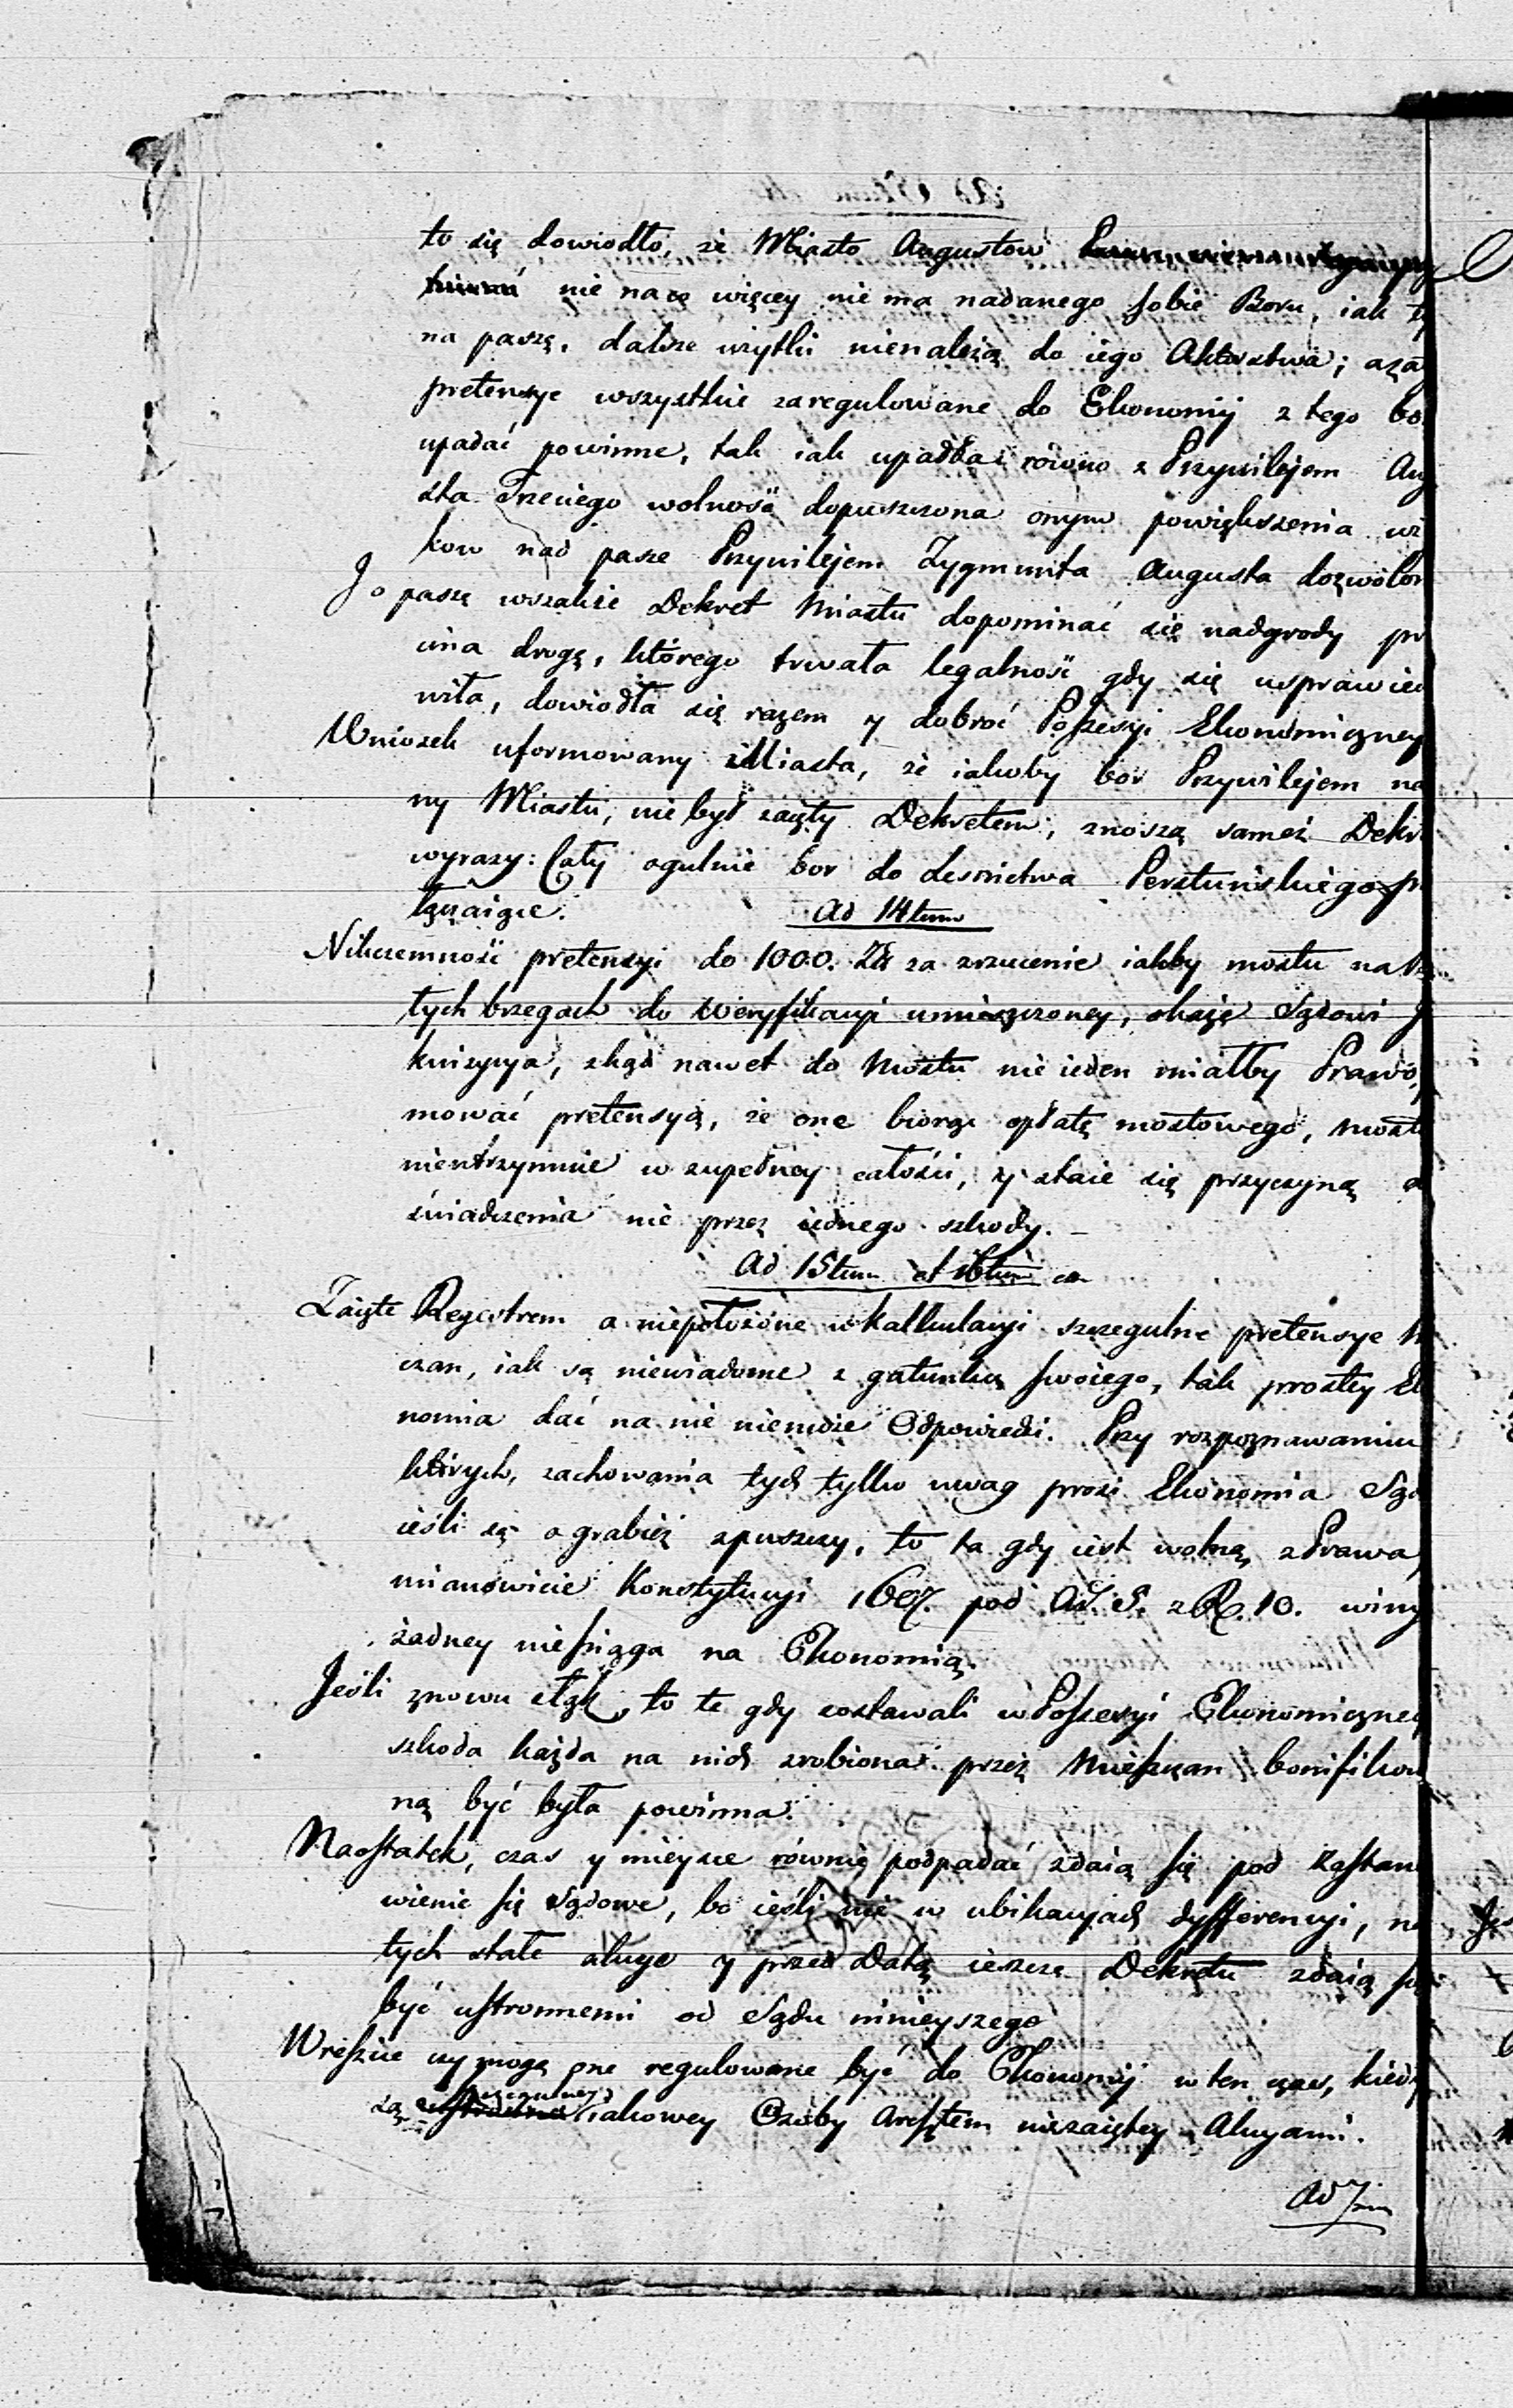 to się dowiodło, że Miasto Augustow
nie na co więcey nie ma nadanego sobie Boru, iak
na paszę, dalsze użytki nienależą do iego Aktorstwa; a
pretensye wszystkie zaregulowane do Ekonomij z tego bo
upadać powinne, tak iak upadła rowno z Przywilejem Aug
sta Trzeciego wolność dopuszczona onym powiększenia uż
kow nad pasze Przywilejem Zygmunta Augusta dozwolon
J o paszę wszakże Dekret Miastu dopominać się nadgrody pr
cina drogę, którego trwała legalność gdy się usprawied
wiła, dowiodła się razem y dobroć Possesyi Ekonomiczney
Wniosek uformowany z Miasta, że iakoby bor Przywilejem na
ny Miastu, nie był zaięty Dekretem, znoszą sameż Dekr
wyrazy: Cały ogulnie bor do Lesnictwa Persztuńskiego p
łączaiąc.
Ad 14tum
Nikczemność pretensyi do 1000. Zł za zrzucenie iakby mostu na
tych brzegach do Weryfikacyi umieszczoney, okaże Sądowi J
kwizycya, zkąd nawet do Mostu nie ieden miałby Prawo,
mować pretensyą, że one biorąc opłatę mostowego, Mostu
nieutrzymuie w zupełney całości, y staie się przyczyną
świadczenia nie przez iednego szkody. –
Ad 15tum et 16tum
Zaięte Regestrem a niepołożone w Kalkulacyi szczegulne pretensye M
czan, iak są niewiadome z gatunku swoiego, tak prostey Ek
nomia dać na nie niemoże Odpowiedzi. Przy rozpoznawaniu
których, zachowania tych tylko uwag prosi Ekonomia Sąd
ieśli są o grabież z puszczy, to ta gdy iest wolną z Prawa,
mianowicie Konstytucyi 1607. pod A. S. z R. 10. winy
żadney niesciąga na Ekonomią.
Jeśli znowu z łąk, to te gdy zostawali w Possesyi Ekonomiczney
szkoda każda na nich zrobiona przez Mieszczan bonifikow
ną być była powinna.
Naostatek, czas y mieysce rownie podpadać zdaią się pod Zastano
wienie się Sądowe, bo ieśli nie w ubikacyach dyfferencyi, n
tych stałe akcye y przed Datą ieszcze Dekretu zdaią się
być ustronnemi od Sądu ninieyszego
Wreszcie czy mogą one regulowane być do Ekonomij w ten czas, kiedy
są szczegulney iakowey Osoby Aresztem niezaiętey Akcyami.
Ad 7